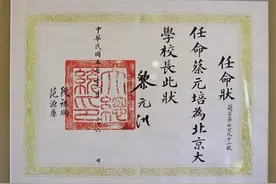 任命狀
任命蔡元培為北京大
學校長此狀
黎元洪
中華民國五年
日
段祺瑞
范源廉